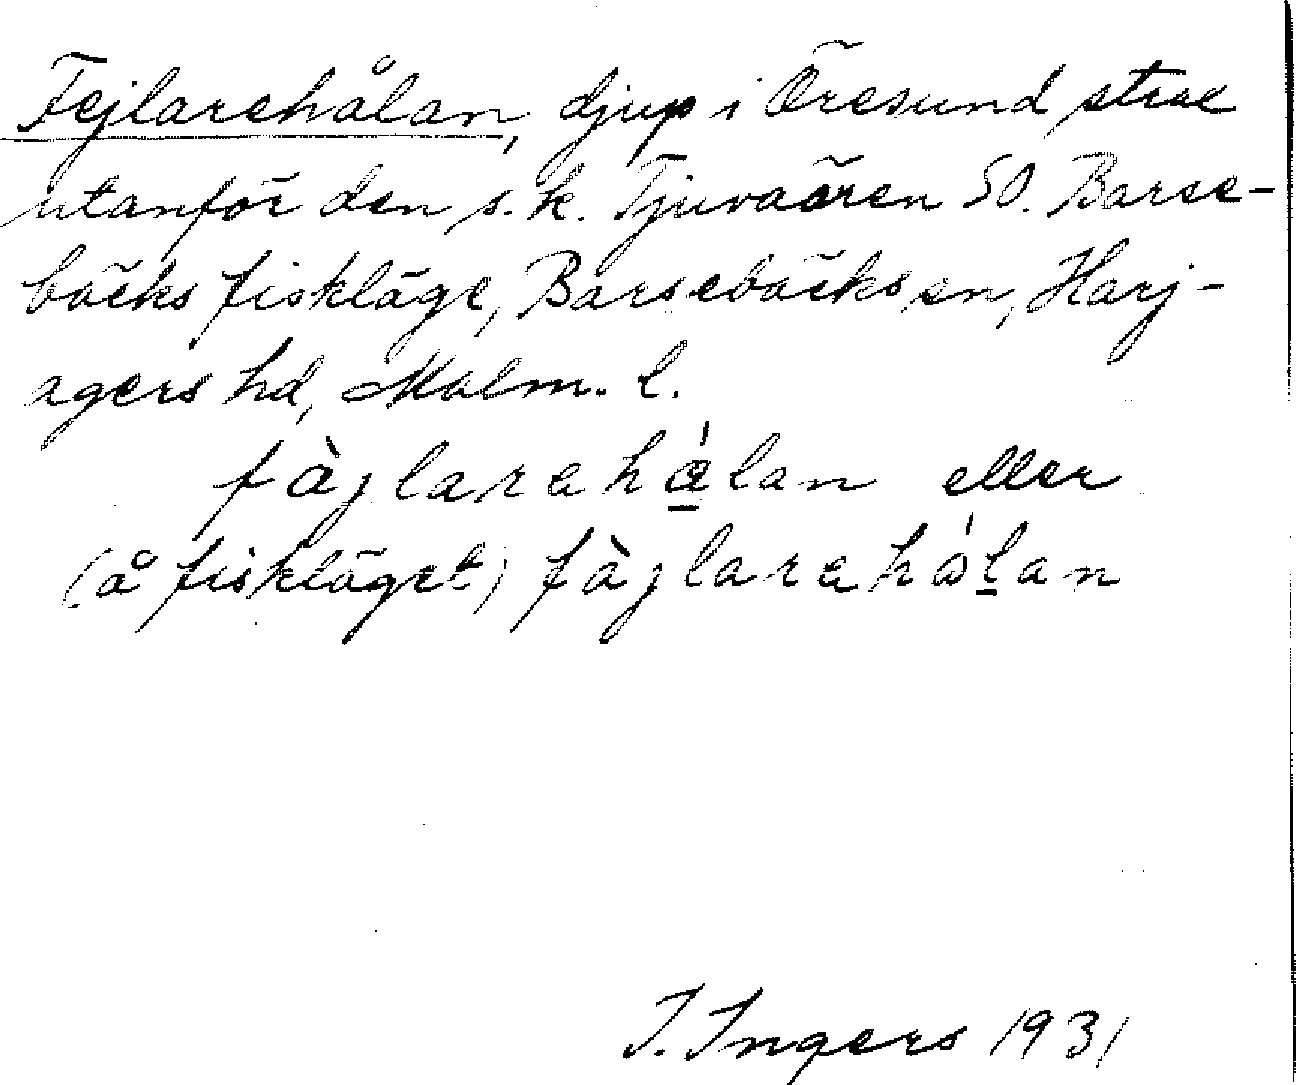 Fejlarehålan, djup i Öresund strax
utanför den s.k. Tjuvaören SO. Barse-
bäcks fiskläge, Barsebäcks sn, Harj-
agers hd, Malm. l.
fàjlarahǽlan eller
(å fiskläget) fàjlarahålan
I. Ingers 1931